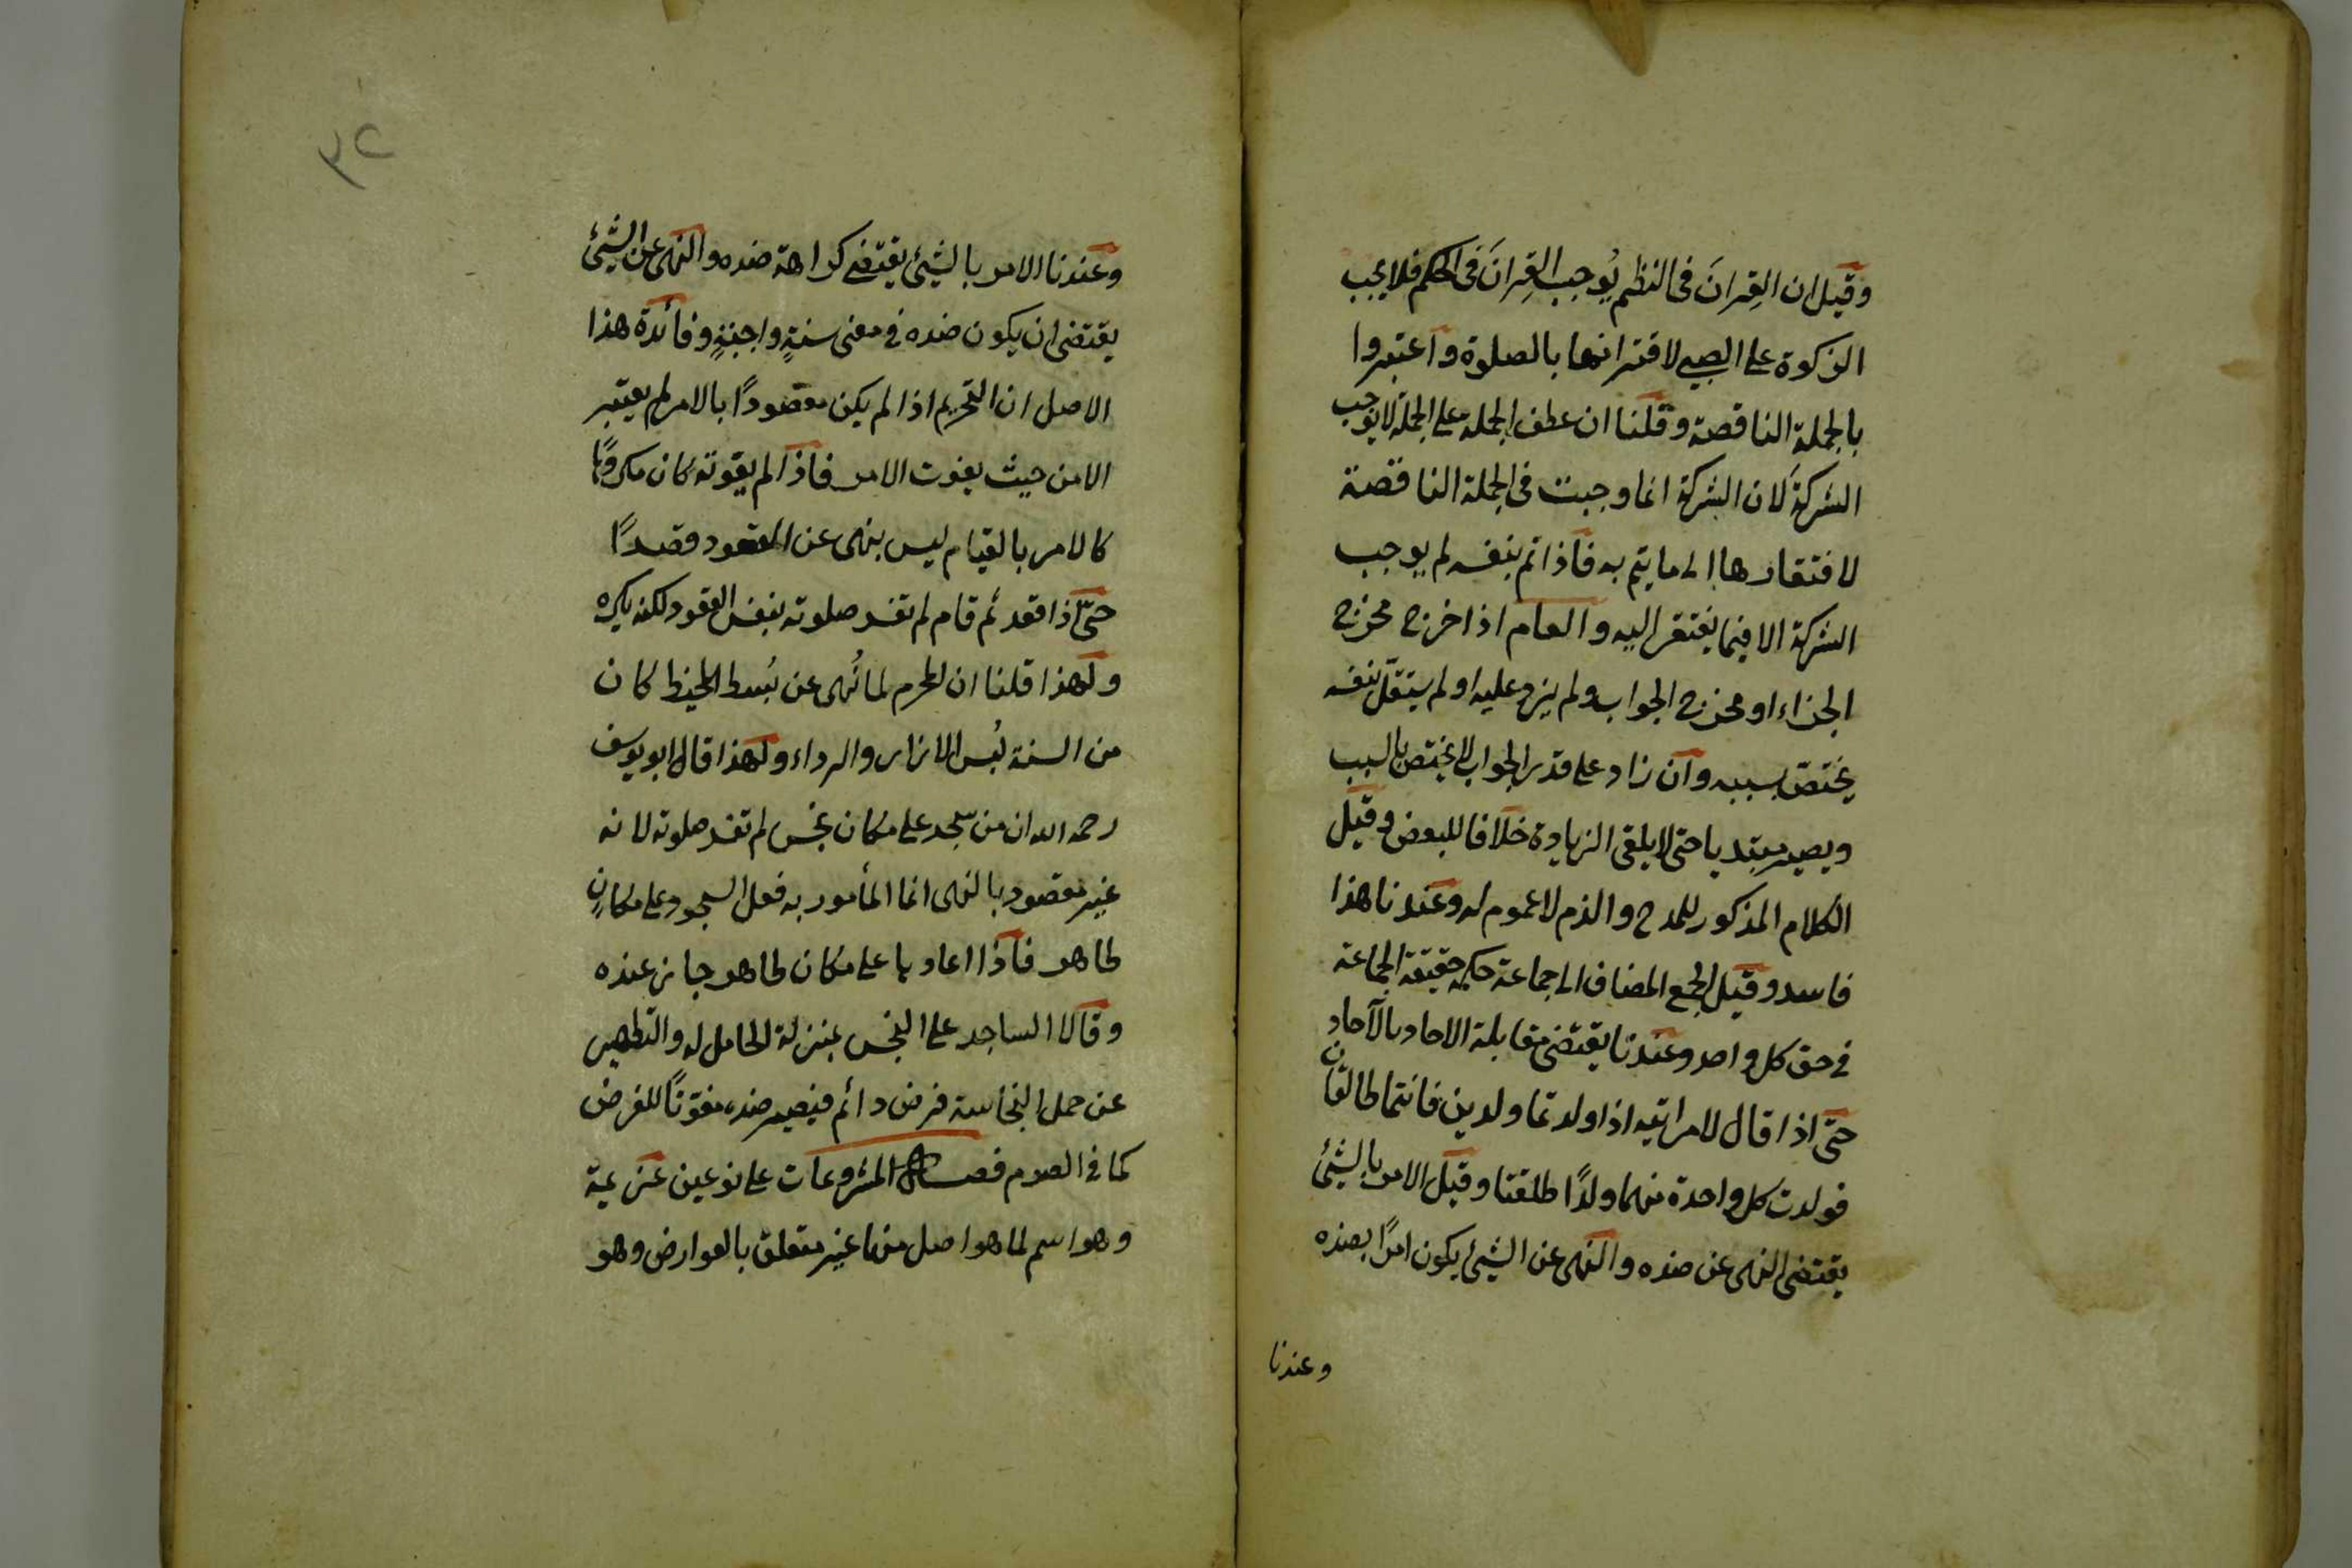 وقيل ان القِرانَ فى النظم يُوجب القِرانَ فى الحكم فلا يجب
الزكوة على الصبى لاقترانها بالصلوة واعتبروا
بالجملة الناقصة وقلنا ان عطف الجملة على الجملة لا يوجب
الشركة لان الشركة انما وجبت فى الجملة الناقصة
لافتقارها الى ما يتم به فاذا تم بنفسه لم يوجب
الشركة الا فيما يفتقر اليه والعام اذا خرج مخرج
الجزاء او مخرج الجواب ولم يزد عليه او لم يستقلّ بنفسه
يختصّ بسببه وان زاد على قدر الجواب لا يختص بالسبب
ويصير مبتديا حتى لا يلغى الزيادة خلافا للبعض وقيل
الكلام المذكور للمدح والذم لا عموم له وعندنا هذا
فاسد وقيل الجمع المضاف الى جماعة حكمه حقيقة الجماعة
فى حق كل واحد وعندنا يقتضى مقابلة الاحاد بالآحاد
حتّى اذا قال لامراتيه اذا ولدتما ولدين فانتما طالقان
فولدت كل واحدة منهما ولدًا طلقتا وقيل الامر بالشيئ
يقتضى النهى عن ضده والنهى عن الشيئ يكون امرًا بضده
وعندنا
٣٢
وعندنا الامر بالشيئ يقتضى كراهة ضده والنهى عن الشيئ
يقتضى ان يكون ضده فى معنى سنةٍ واجبةٍ وفائدة هذا
الاصل ان التحريم اذا لم يكن مقصودًا بالامر لم يعتبر
الا من حيث يفوت الامر فاذا لم يفوته كان مكروهًا
كالامر بالقيام ليس بنهى عن القعود قصدًا
حتّى اذا قعد ثم قام لم تفسد صلوته بنفس القعود لكنه يكره
ولهذا قلنا ان المحرم لما نُهى عن لبس المخيط كان
من السنة لُبس الازار والرداء ولهذا قال ابو يوسف
رحمه الله ان من سجد على مكان نجس لم تفسد صلوته لانه
غير مقصود بالنهى انما المأمور به فعل السجود على مكانٍ
طاهر فاذا اعادها على مكان طاهر جاز عنده
وقالا الساجد على النجس بمنزلة الحامل له والتطهير
عن حمل النجاسة فرض دائم فيصير ضده مفوّتًا للفرض
كما فى الصوم فصل المشروعات على نوعين عزيمة
وهو اسم لما هو اصل منها غير متعلق بالعوارض وهو